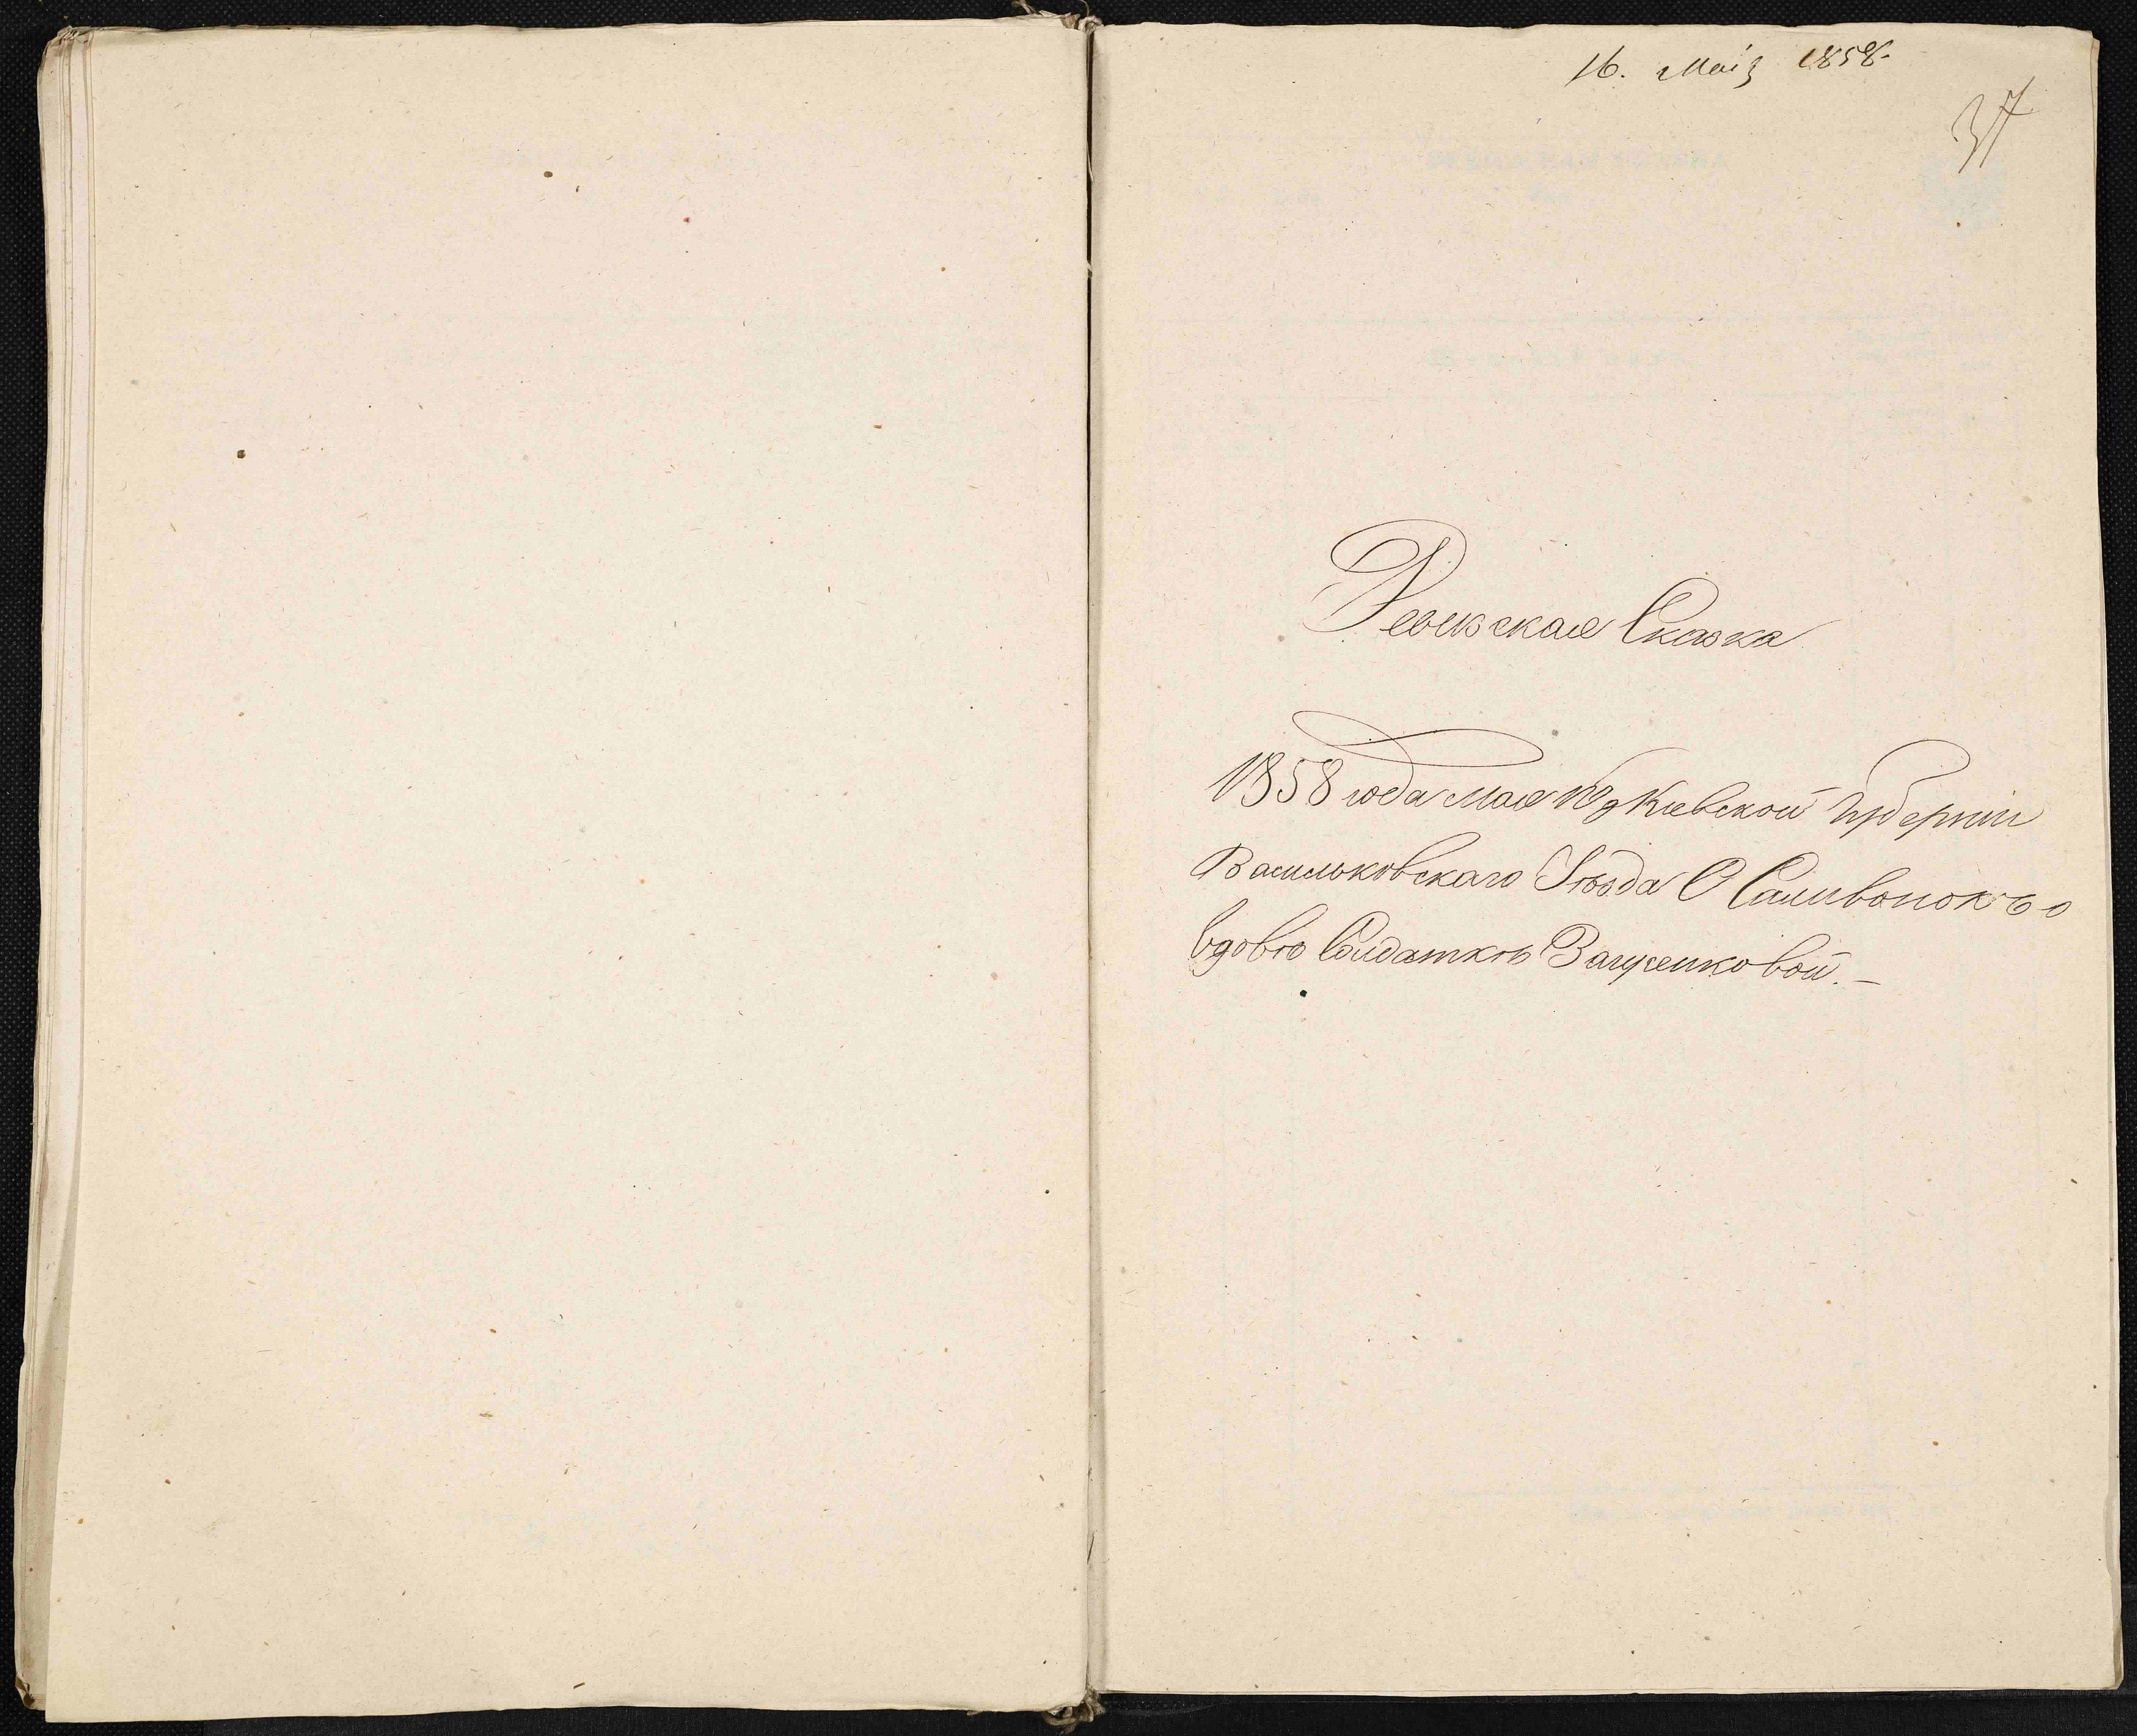 16. Маія 1858.
37
Ревизская Сказка
1858 года мая 10 д Кіевской губерніи
Васильковскаго Уѣзда С Саливонокъ о
вдовѣ Солдаткѣ Ващенковой. —